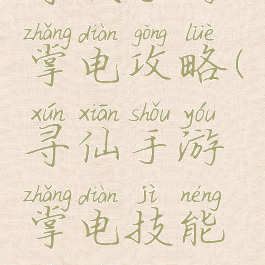 zhǎng diàn gōng lüè
掌电攻略(
xún xiān shǒu yóu
寻仙手游
zhǎng diàn jì néng
掌电技能